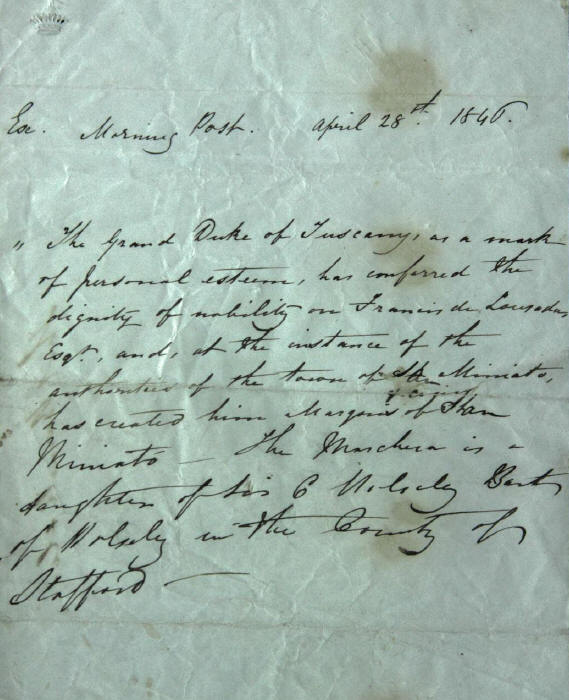 Ex. Morning Post. April 28th. 1846.
" The Grand Duke of Tuscany, as a mark
of personal esteem, has conferred the
dignity of nobility on Francis de Lousada,
Esqr., and, at the instance of the
authorities of the town of San Miniato,
has created him Marquis of San
Miniato — The Marchesa is a
daughter of Sir C Wolseley Bart
of Wolseley in the County of
Stafford —